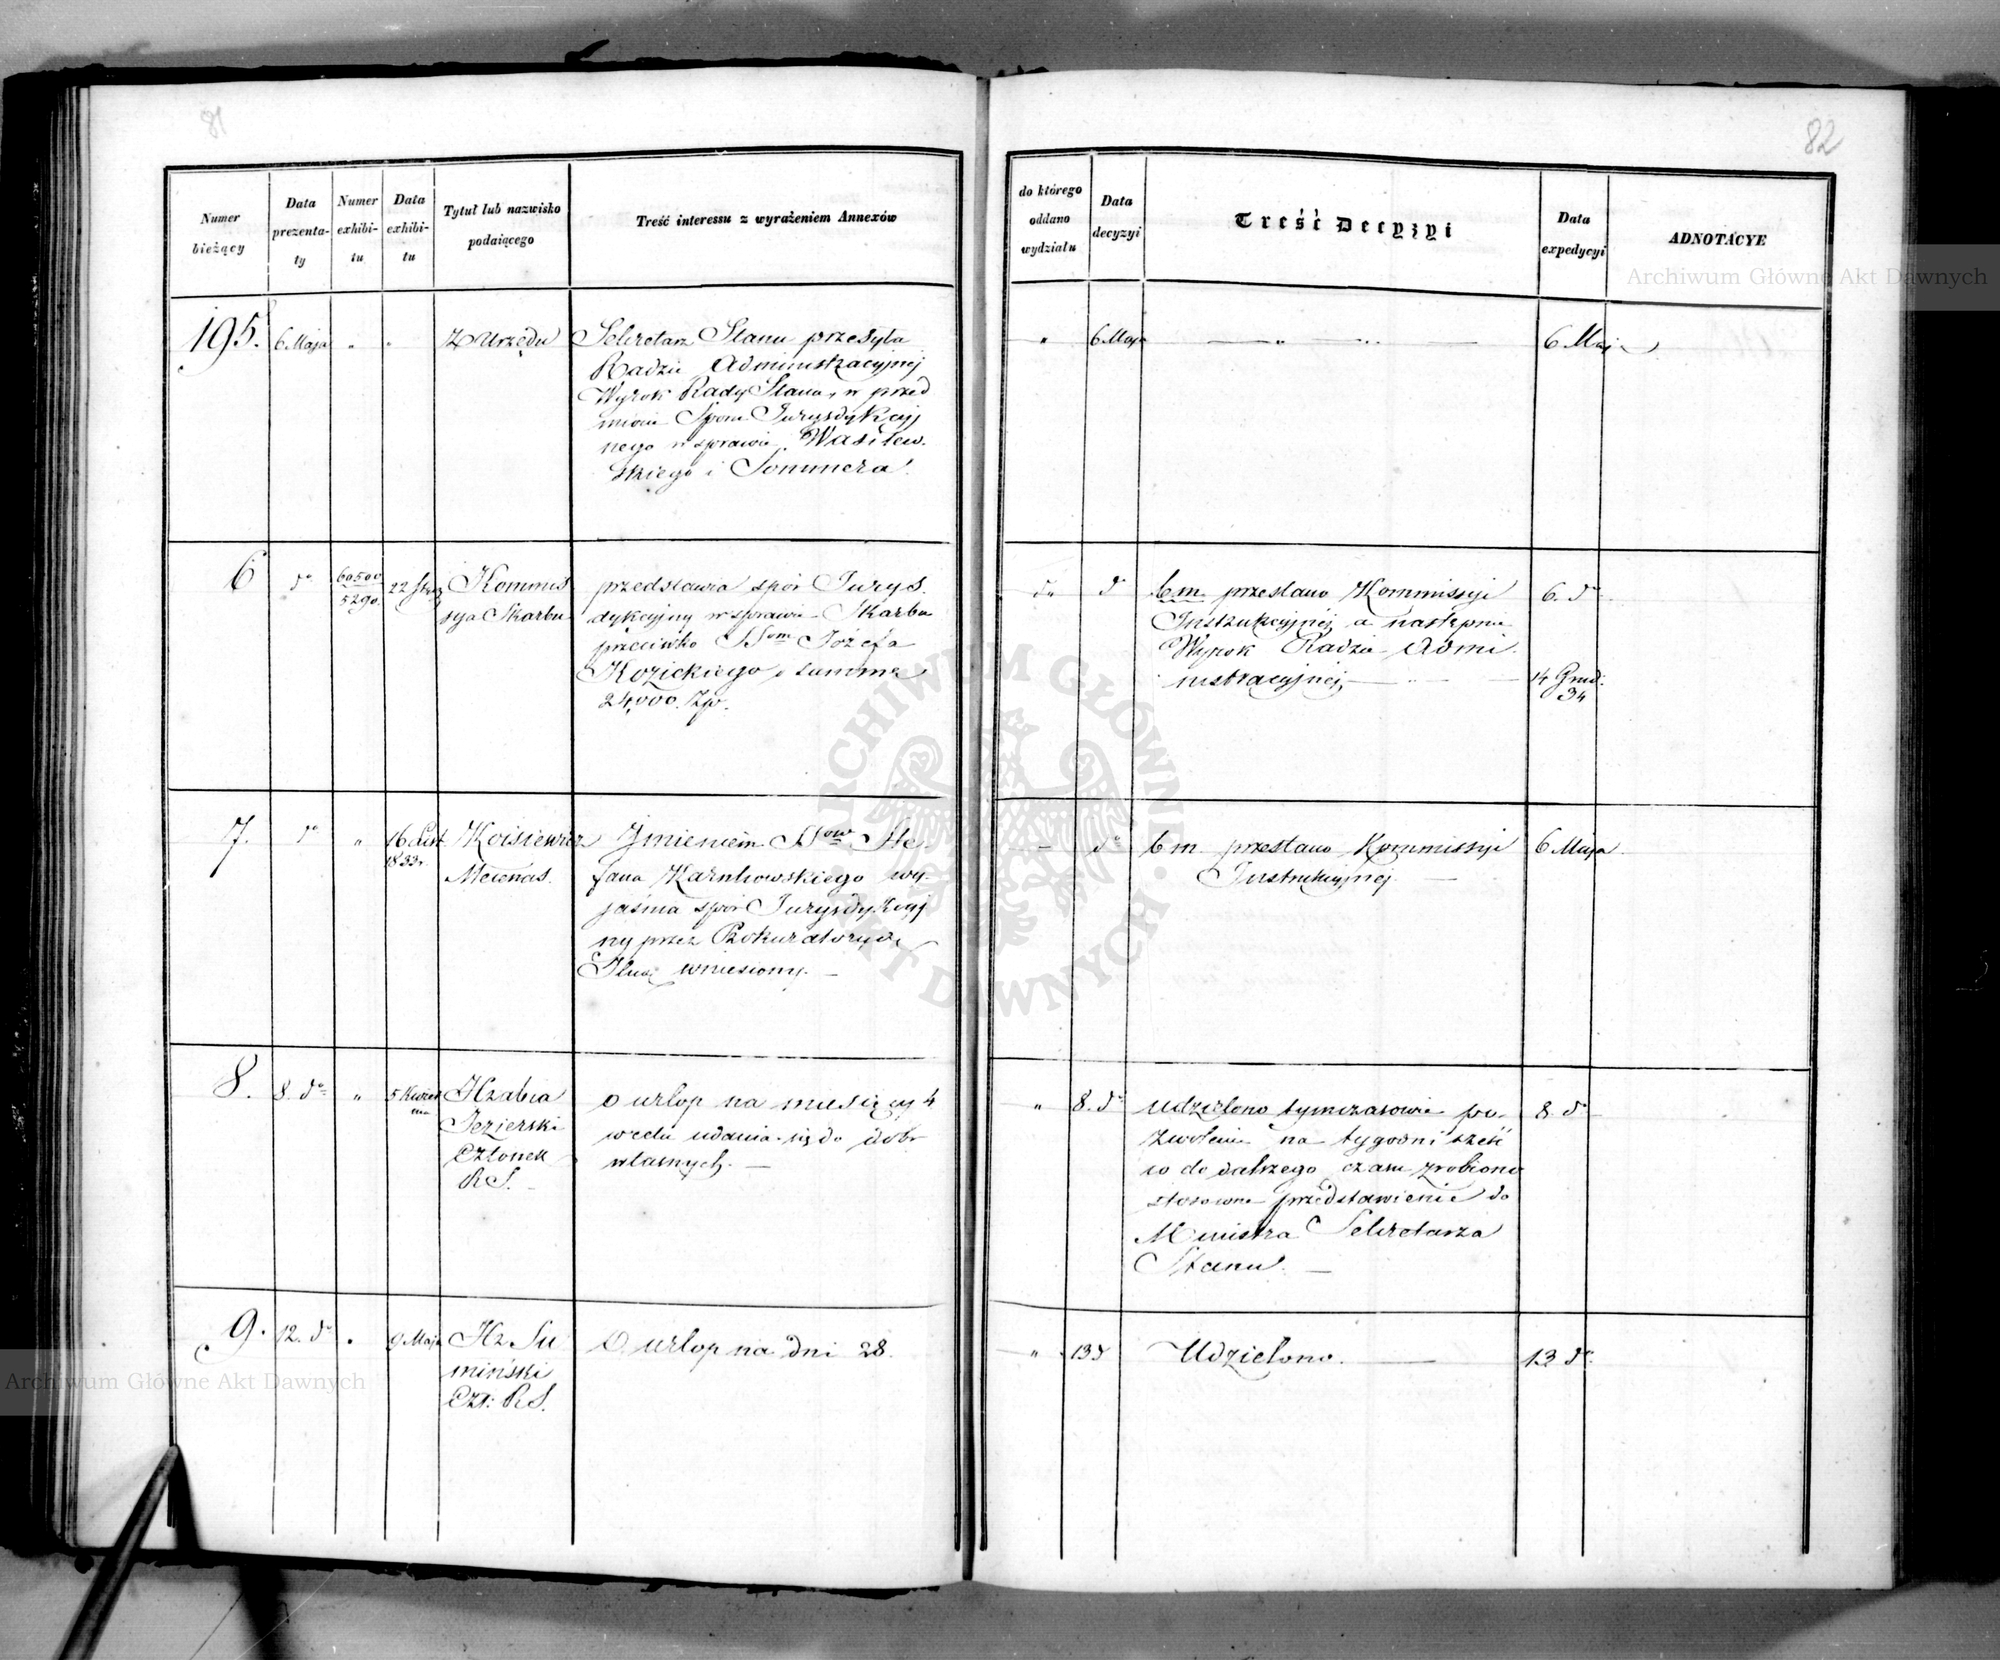 81
Numer
bieżący
Data
prezenta-
ty
Numer
exhibi-
tu
Data
exhibi-
tu
Tytuł lub nazwisko
podaiącego
Treść interessu z wyrażeniem Annexów
195.
6 Maja
„
„
Z Urzędu
Sekretarz Stanu przesyła
Radzie Administracyjnej
Wyrok Rady Stanu, w przed
miocie Sporu Jurysdykcyj
nego w sprawie Wasilew.
skiego i Sommera.
6
do
60500
5290.
22
Kommis
sya Skarbu
przedstawia spór Jurys.
dykcyjny w sprawie Skarbu
przeciwko SSom Józefa
Kozickiego o summę
24,000. Zp.
7.
do
„
16 List.
1833r.
Mecenas.
Imieniem SSow Ste.
fana Karnkowskiego wy
jaśnia spór Jurysdykcyj
ny przez Prokuratoryą
wniesiony. —
8.
8. do
„
5 Kwiet
nia
Hrabia
Jezierski
Członek
R S. —
o urlop na miesięcy 4
w celu udania się do dóbr
własnych. —
9.
12. do
„
9 Maja
Hr. Su
miński
Czł: R S.
O urlop na dni 28.
82
do którego
oddano
wydziału
Data
decyzyi
Treść Decyzyi
Data
expedycyi
ADNOTACYE
„
6 Maja
— „ — „ —
6 Maja
do
b.m. przesłano Kommissyi
Instrukcyjnéj, a następnie
Wyrok Radzie Admi
nistracyjnéj, —
6. do
14 Grud.
34
–
do
b m. przesłano Kommissyi
Instrukcyjnej —
6 Maja
„
8. do
Udzielono tymczasowie po.
zwolenie na tygodni sześć
co do dalszego czasu zrobiono
stosowne przedstawienie do
Ministra Sekretarza
Stanu. —
8. do
„
13 d
Udzielono. —
13 do
Archiwum Główne Akt Dawnych
ARCHIWUM GŁÓWNE AKT DAWNYCH
Archiwum Główne Akt Dawnych